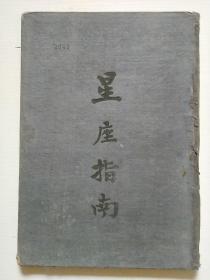 星座指南